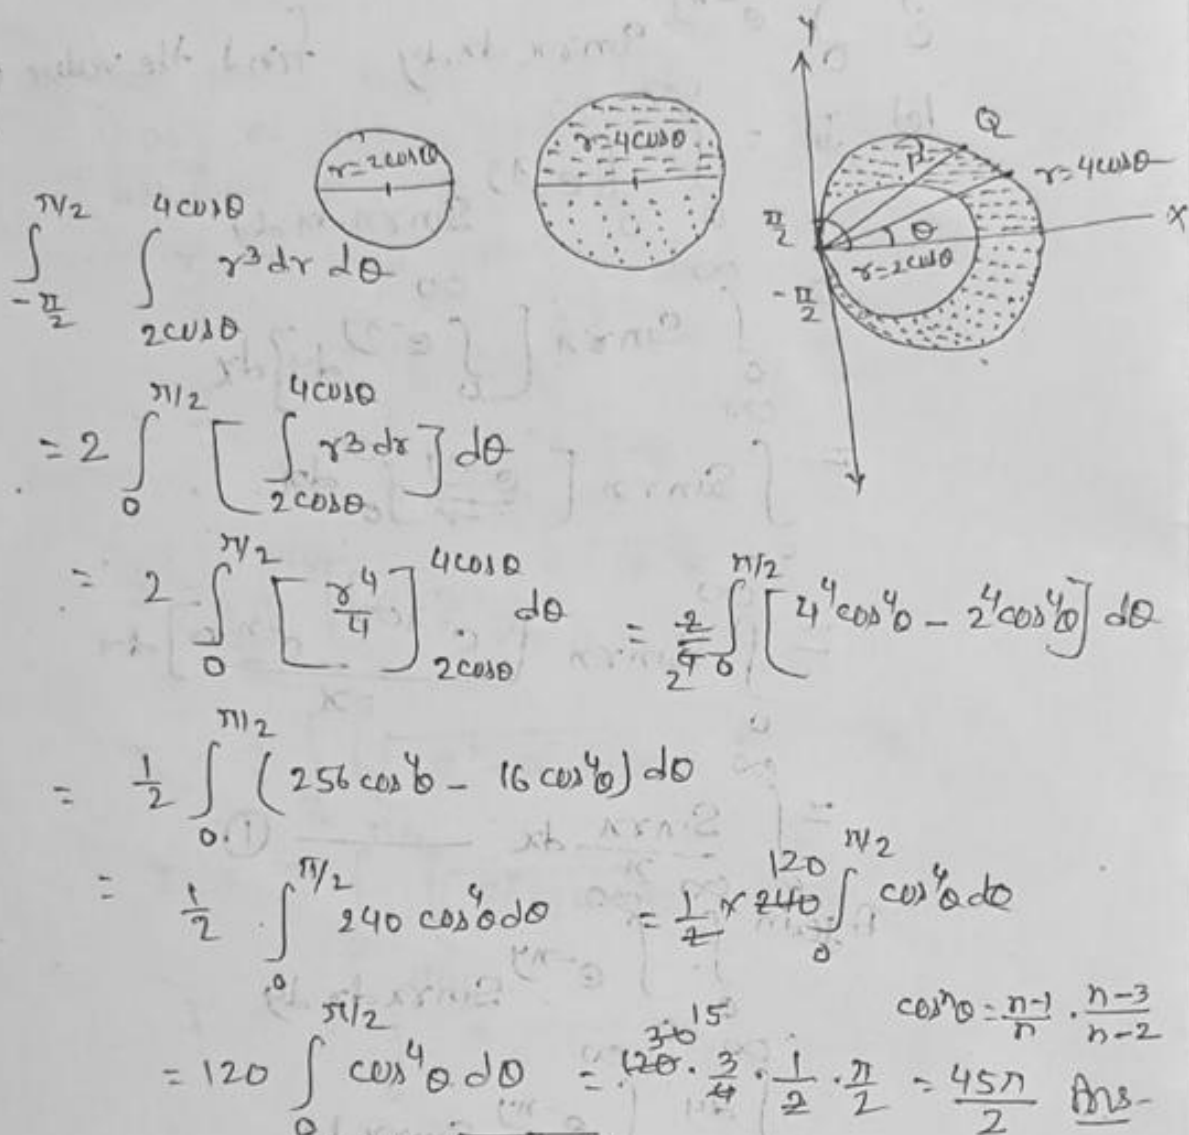 Y
r=2cosθ
r=4cosθ
Q
P
r=4cosθ
X
π/2
θ
r=2cosθ
-π/2
∫_{-π/2}^{π/2} ∫_{2cosθ}^{4cosθ} r³ dr dθ
= 2 ∫_0^{π/2} [ ∫_{2cosθ}^{4cosθ} r³ dr ] dθ
= 2 ∫_0^{π/2} [ r⁴/4 ]_{2cosθ}^{4cosθ} dθ = 2/4 ∫_0^{π/2} [ 4⁴cos⁴θ - 2⁴cos⁴θ ] dθ
2
= 1/2 ∫_0^{π/2} ( 256 cos⁴θ - 16 cos⁴θ ) dθ
= 1/2 ∫_0^{π/2} 240 cos⁴θ dθ = 1/2 × 240 ∫_0^{π/2} cos⁴θ dθ
120
cosⁿθ = n-1/n · n-3/n-2
= 120 ∫_0^{π/2} cos⁴θ dθ = 120 · 3/4 · 1/2 · π/2 = 45π/2 Ans-
30 15